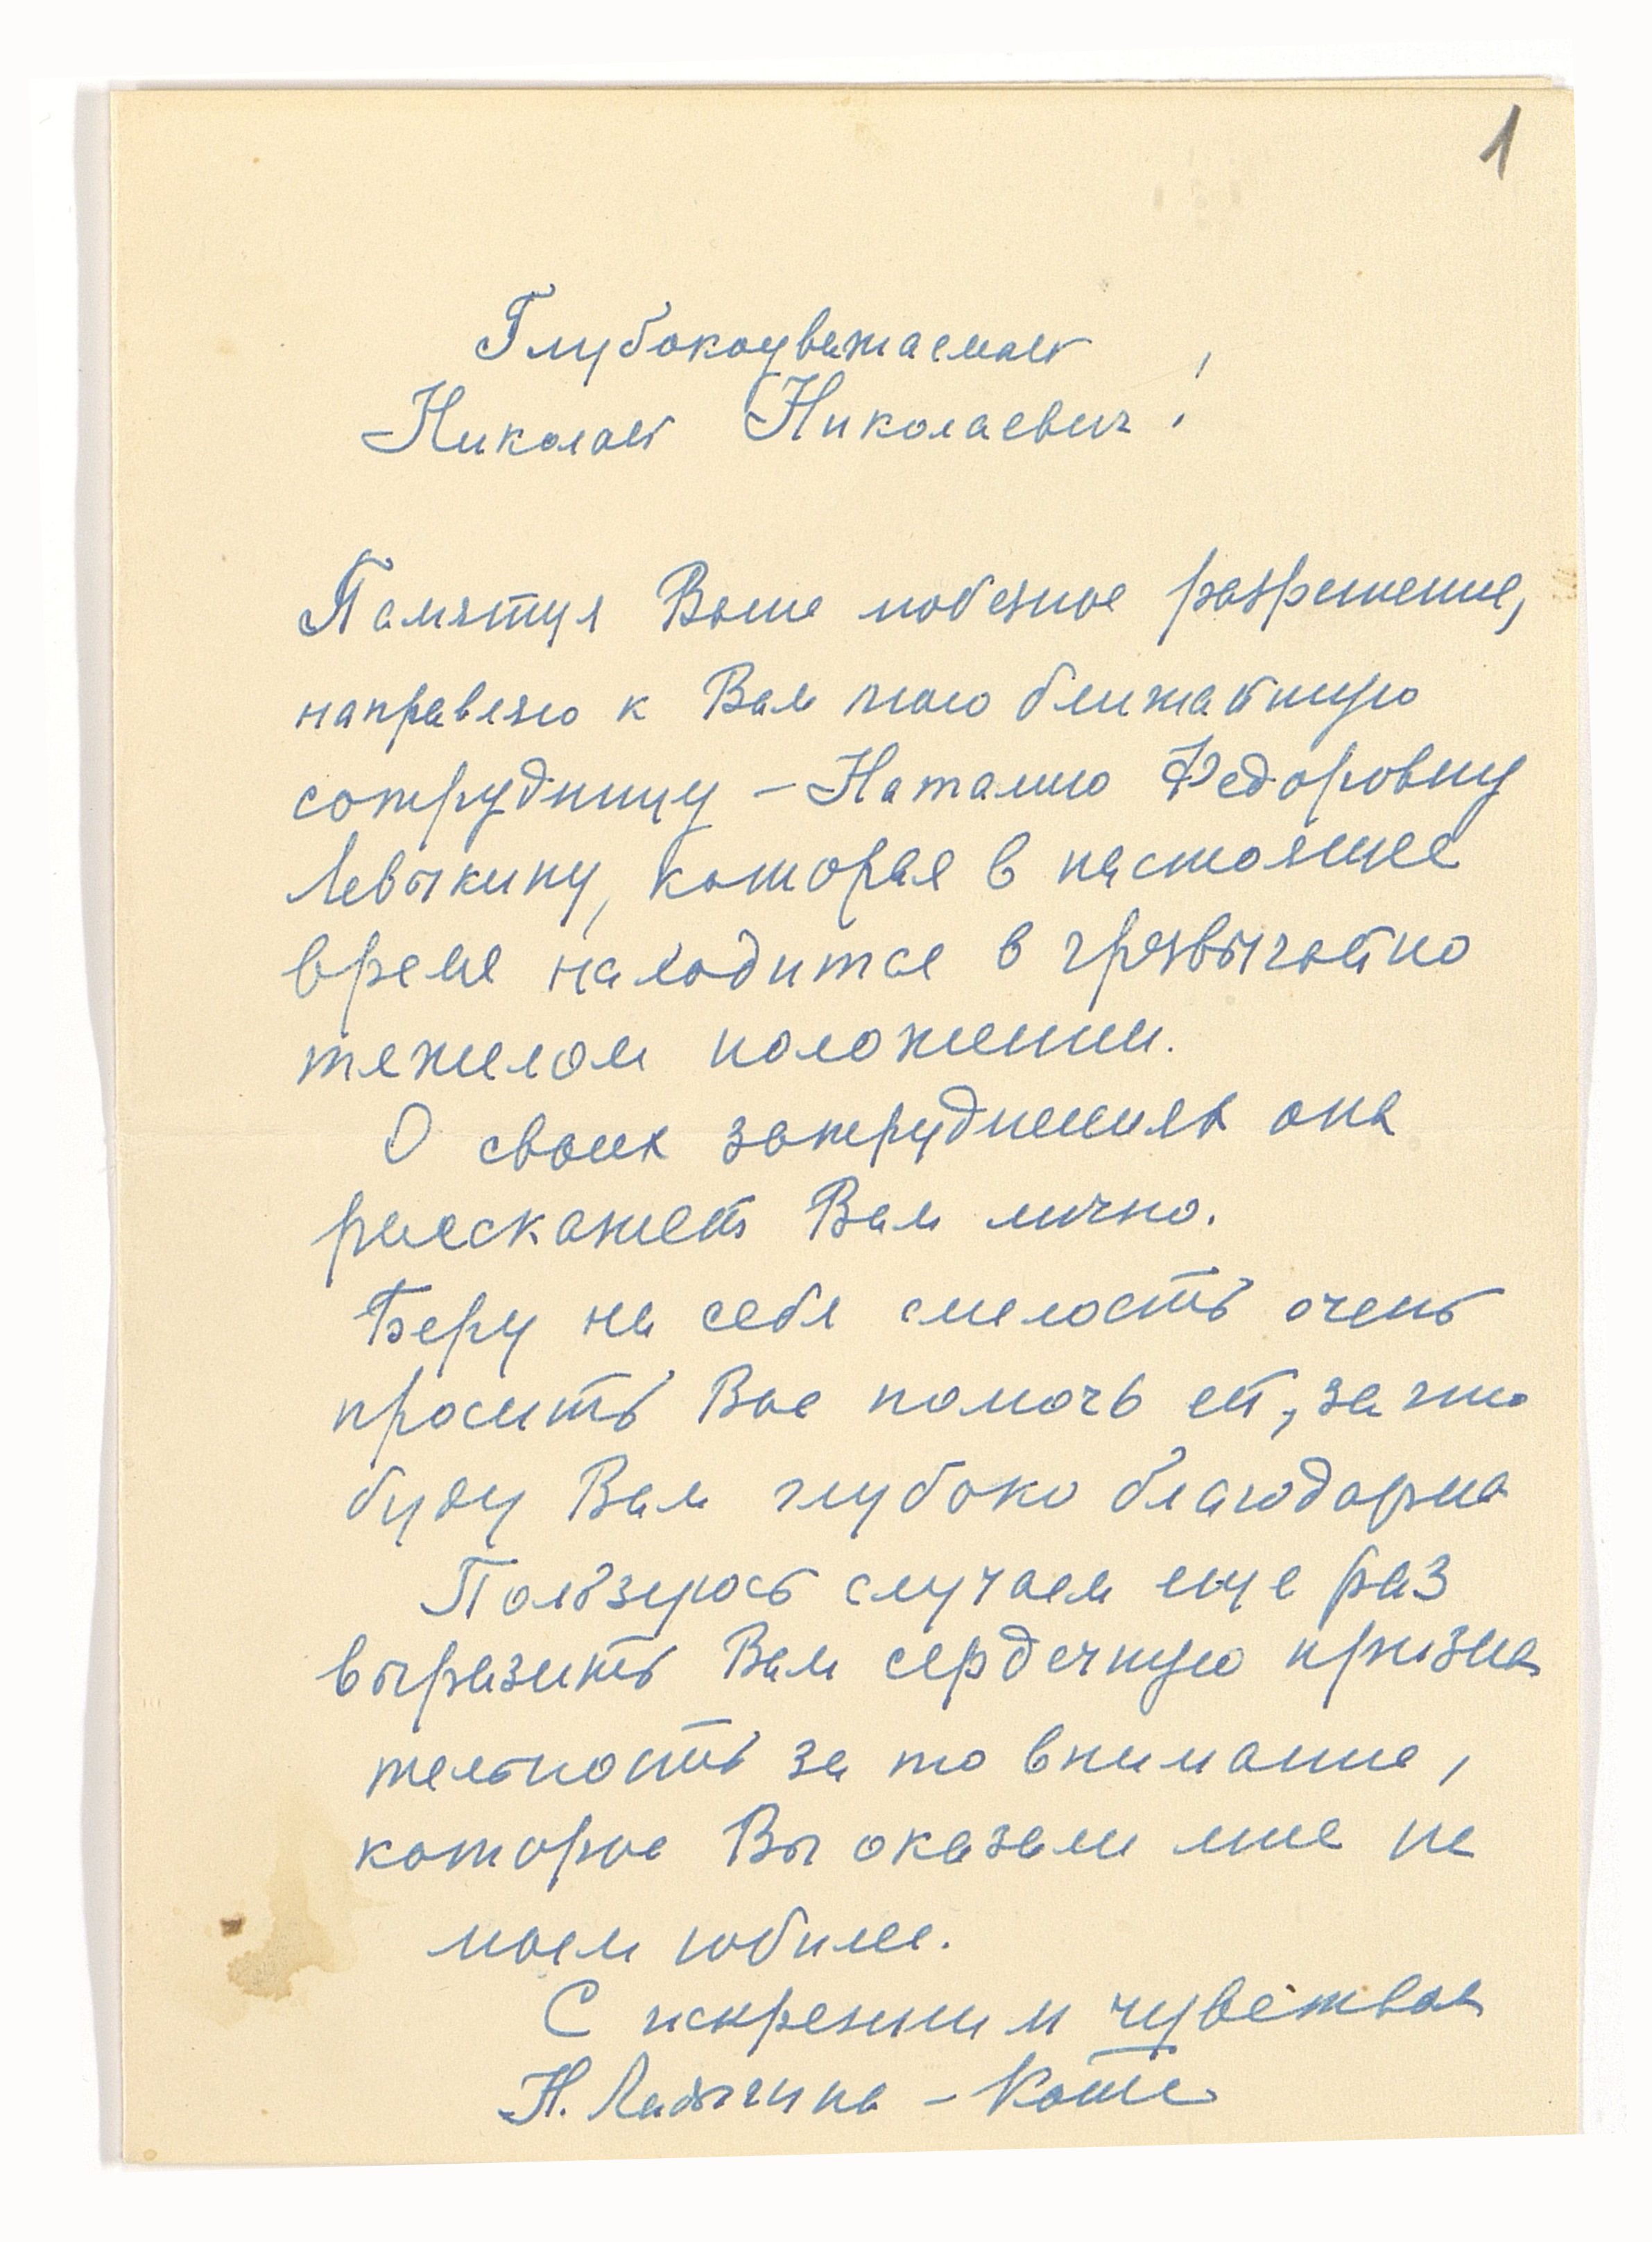 1
Глубокоуважаемый
Николай Николаевич!
Памятуя Ваше любезное разрешение,
направляю к Вам мою ближайшую
сотрудницу – Наталию Федоровну
Левыкину, которая в настоящее
время находится в чрезвычайно
тяжелом положении.
О своих затруднениях она
расскажет Вам лично.
Беру на себя смелость очень
просить Вас помочь ей, за что
буду Вам глубоко благодарна
Пользуюсь случаем еще раз
выразить Вам сердечную призна
тельность за то внимание,
которое Вы оказали мне на
моем юбилее.
С искренним чувством
Н. Ладыгина – Котс